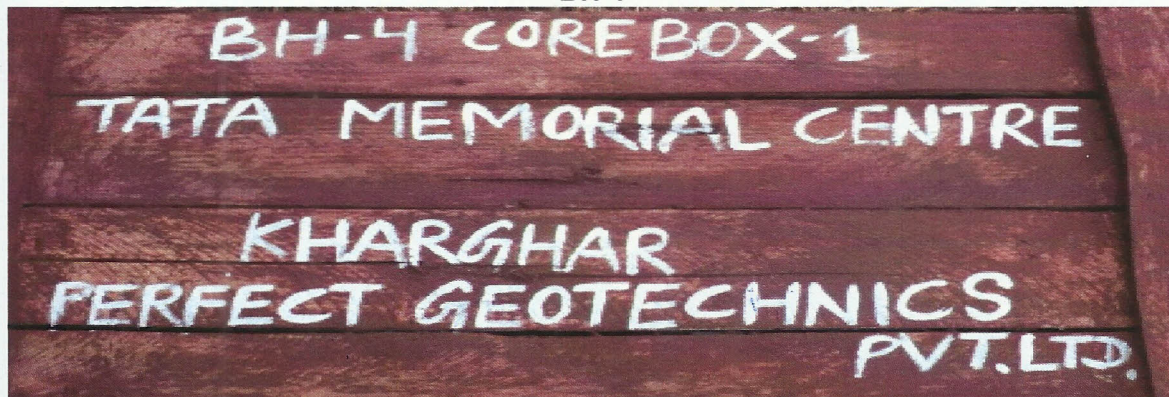 BH-4 COREBOX-1
TATA MEMORIAL CENTRE
KHARGHAR
PERFECT GEOTECHNICS
PVT.LTD.